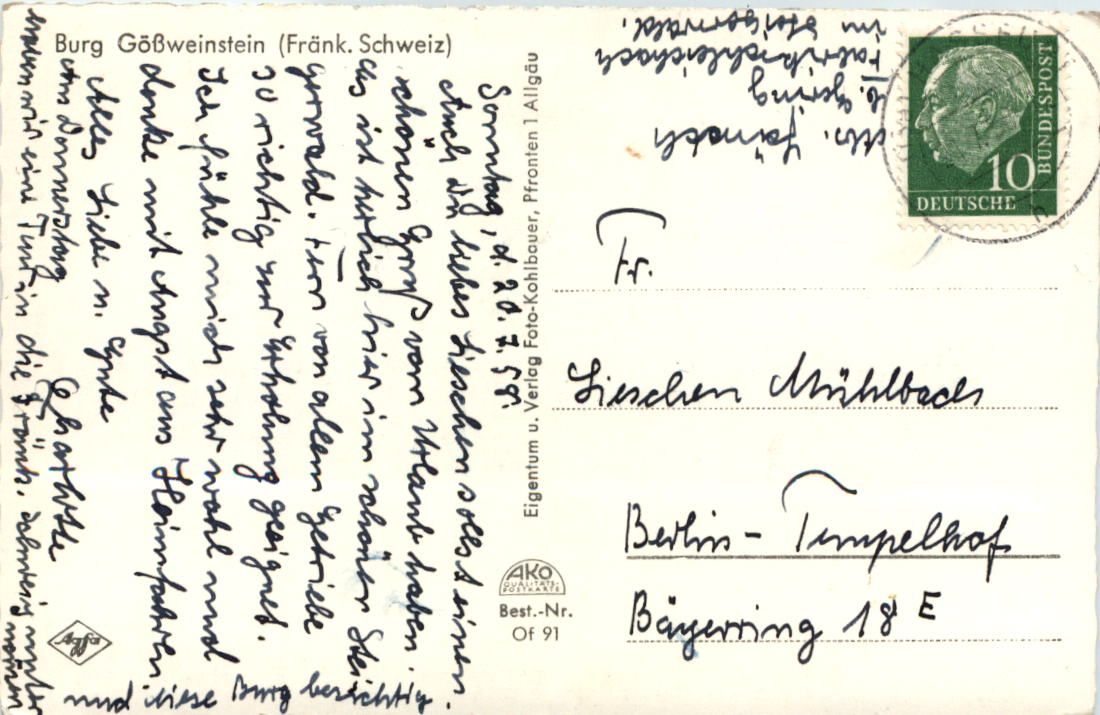 Burg Gößweinstein (Fränk. Schweiz)
Sonntag, d. 20.7.58.
Auch Du liebes Lieschen sollst einen
schönen Gruß vom Urlaub haben.
Es ist herrlich hier im schönen Stei-
gerwald. Fern von allem Getriebe
so richtig zur Erholung geeignet.
Ich fühle mich sehr wohl und
denke mit Angst ans Heimfahren.
Alles Liebe u. Gute
Charlotte
Am Donnerstag
haben wir eine Tour in die Fränk. Schweiz unter
nommen
und diese Burg besichtigt.
Agfa
Eigentum u. Verlag Foto-Kohlbauer, Pfronten 1 Allgäu
AKO
QUALITÄTS-
POSTKARTE
Best.-Nr.
Of 91
Abs.
b. Gering
Fabrikschleichach
im Steigerwald.
10
DEUTSCHE
BUNDESPOST
Fr.
Lieschen Mühlbach
Berlin - Tempelhof
Bäyerring 18 E